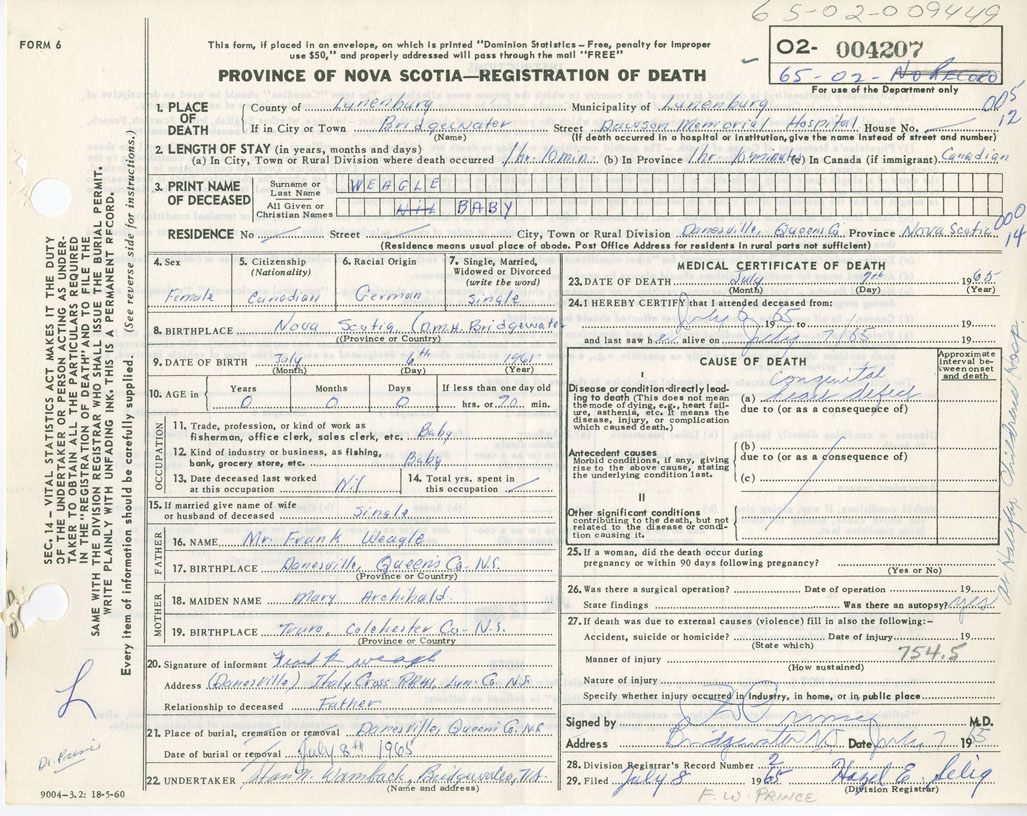 65-02-009449
FORM 6
This form, if placed in an envelope, on which is printed "Dominion Statistics – Free, penalty for improper
use $50," and properly addressed will pass through the mail "FREE"
02- 004207
65-02- No Record
For use of the Department only
PROVINCE OF NOVA SCOTIA—REGISTRATION OF DEATH
005
12
1. PLACE OF DEATH
County of Lunenburg Municipality of Lunenburg
If in City or Town Bridgewater Street Dawson Memorial Hospital House No.
(Name) (If death occurred in a hospital or institution, give the name instead of street and number)
2. LENGTH OF STAY (in years, months and days)
(a) In City, Town or Rural Division where death occurred 1 hr. 10 min (b) In Province 1 hr. 10 minutes (c) In Canada (if immigrant) Canadian
3. PRINT NAME OF DECEASED
Surname or Last Name WEAGLE
All Given or Christian Names Nil BABY
000
14
RESIDENCE No Street City, Town or Rural Division Danesville, Queens Co. Province Nova Scotia
(Residence means usual place of abode. Post Office Address for residents in rural parts not sufficient)
4. Sex
Female
5. Citizenship
(Nationality)
Canadian
6. Racial Origin
German
7. Single, Married,
Widowed or Divorced
(write the word)
Single
8. BIRTHPLACE Nova Scotia (D.M.H. Bridgewater
(Province or Country)
9. DATE OF BIRTH July 6th 1965
(Month) (Day) (Year)
10. AGE in
Years Months Days If less than one day old
0 0 0 hrs. or 70 min.
OCCUPATION
11. Trade, profession, or kind of work as
fisherman, office clerk, sales clerk, etc. Baby
12. Kind of industry or business, as fishing,
bank, grocery store, etc. Baby
13. Date deceased last worked
at this occupation Nil
14. Total yrs. spent in
this occupation
15. If married give name of wife
or husband of deceased Single
FATHER
16. NAME Mr. Frank Weagle
17. BIRTHPLACE Danesville, Queens Co. N.S.
(Province or Country)
MOTHER
18. MAIDEN NAME Mary Archibald.
19. BIRTHPLACE Truro, Colchester Co. N.S.
(Province or Country)
20. Signature of informant Frank Weagle
Address (Danesville) Italy Cross RR#1, Lun. Co. N.S.
Relationship to deceased Father
21. Place of burial, cremation or removal Danesville, Queens Co. N.S.
Date of burial or removal July 8th 1965
22. UNDERTAKER Wamback, Bridgewater, N.S.
(Name and address)
MEDICAL CERTIFICATE OF DEATH
23. DATE OF DEATH July 7th 1965
(Month) (Day) (Year)
24. I HEREBY CERTIFY that I attended deceased from:
July 6 65 19 to 19
and last saw her alive on July 7/65 19
CAUSE OF DEATH
Approximate
interval be-
tween onset
and death
I
Disease or condition directly lead-
ing to death (This does not mean
the mode of dying, e.g., heart fail-
ure, asthenia, etc. It means the
disease, injury, or complication
which caused death.)
(a) Congenital
heart defect
due to (or as a consequence of)
Antecedent causes
Morbid conditions, if any, giving
rise to the above cause, stating
the underlying condition last.
(b)
due to (or as a consequence of)
(c)
II
Other significant conditions
contributing to the death, but not
related to the disease or condi-
tion causing it.
25. If a woman, did the death occur during
pregnancy or within 90 days following pregnancy?
(Yes or No)
26. Was there an surgical operation? Date of operation 19
State findings Was there an autopsy? yes
at Halifax Childrens Hosp
27. If death was due to external causes (violence) fill in also the following:–
Accident, suicide or homicide? Date of injury 19
(State which)
754.5
Manner of injury
(How sustained)
Nature of injury
Specify whether injury occurred in industry, in home, or in public place
Signed by M.D.
Address Bridgewater NS Date July 7 1965
28. Division Registrar's Record Number 2
29. Filed July 8 1965 Hazel E. Selig
(Division Registrar)
F. W. PRINCE
SEC. 14 – VITAL STATISTICS ACT MAKES IT THE DUTY
OF THE UNDERTAKER OR PERSON ACTING AS UNDER-
TAKER TO OBTAIN ALL THE PARTICULARS REQUIRED
IN THE "REGISTRATION OF DEATH" AND TO FILE THE
SAME WITH THE DIVISION REGISTRAR WHO SHALL ISSUE THE BURIAL PERMIT.
WRITE PLAINLY WITH UNFADING INK. THIS IS A PERMANENT RECORD.
Every item of information should be carefully supplied. (See reverse side for instructions.)
L
Dr. Prince
9004-3.2: 18-5-60